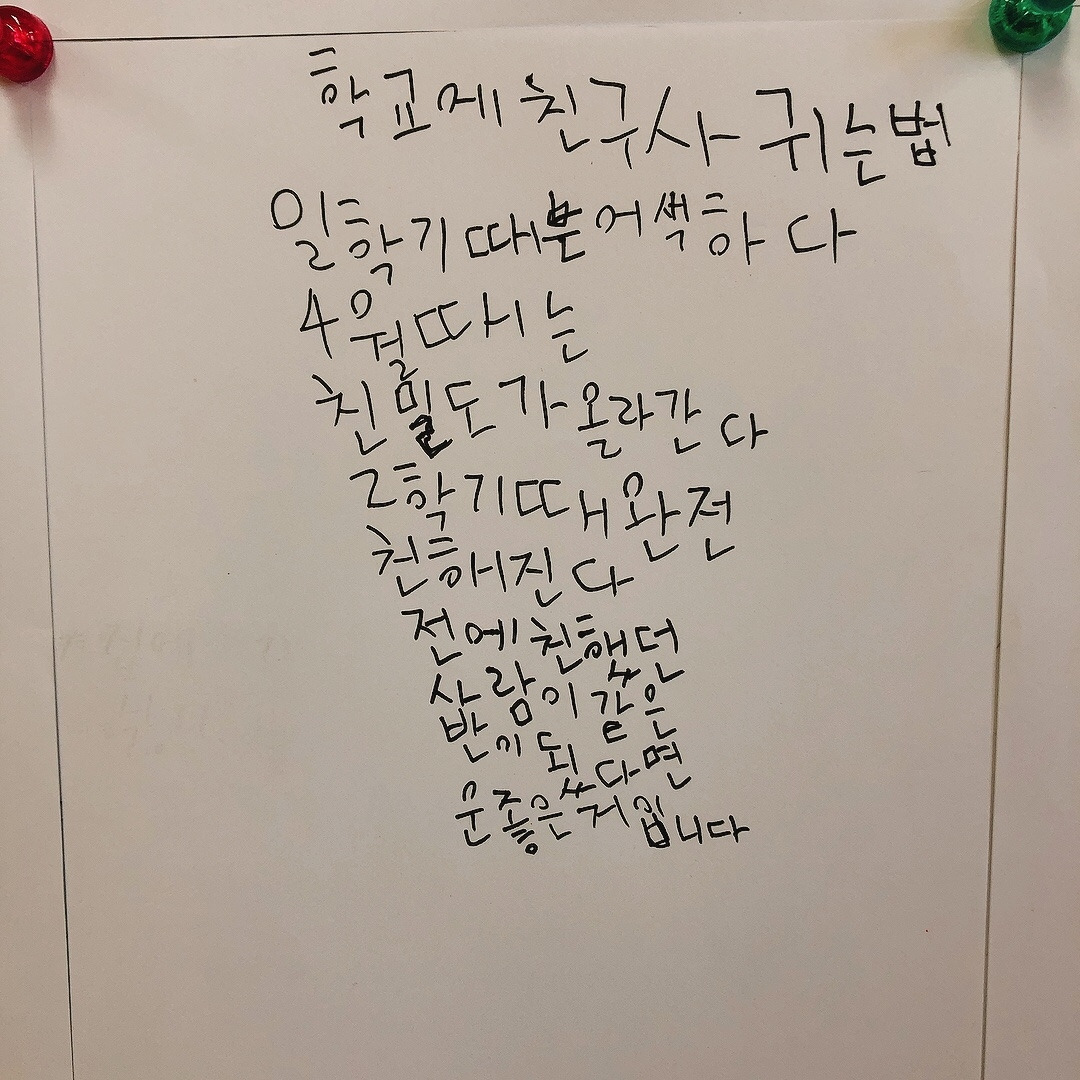 학교제 친구사귀는법
일학기때분어색하다
4월때는
친밀도가올라간다
2학기때완전
친해진다
전에친했던
사람이같은
반이되ㅆ다면
운좋은거입니다